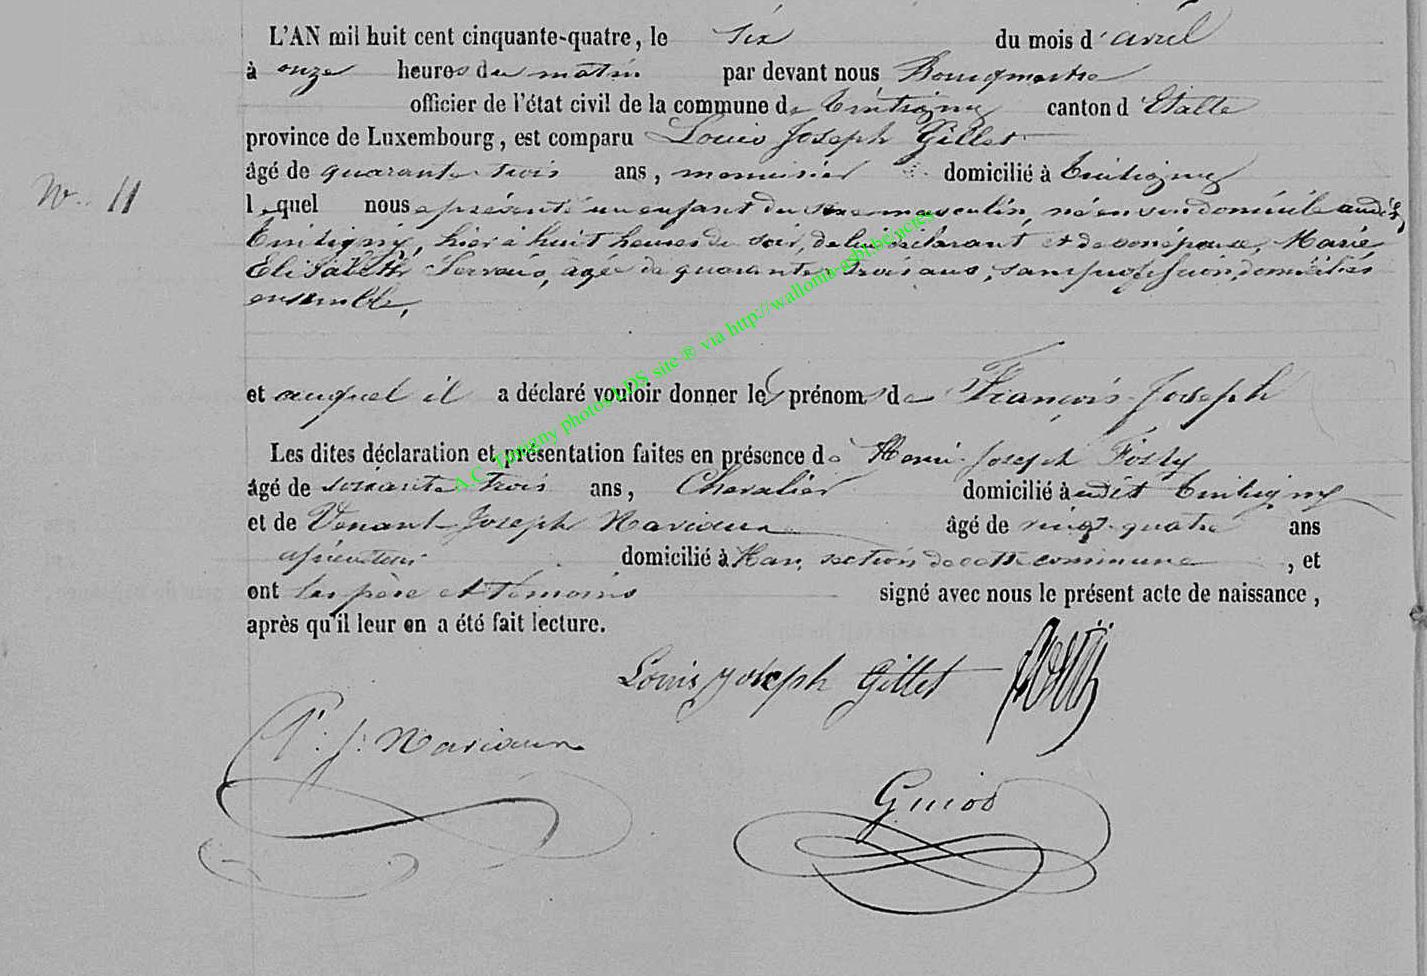 L'AN mil huit cent cinquante-quatre, le six du mois d'avril
à onze heures du matin par devant nous Bourgmestre
officier de l'état civil de la commune de Tintigny canton d'Etalle
province de Luxembourg, est comparu Louis Joseph Gillet
N.. 11
âgé de quarante trois ans, menuisier domicilié à Tintigny
lequel nous a présenté un enfant du sexe masculin, né en son domicile audit
Tintigny, hier à huit heures du soir, de lui déclarant et de son épouse, Marie
Elisabeth Servais, agée de quarante trois ans, sans profession, domiciliés
ensemble,
et auquel il a déclaré vouloir donner les prénoms de François Joseph
Les dites déclaration et présentation faites en présence de Henri Joseph
âgé de soixante trois ans, Chevalier domicilié audit Tintigny
et de Venant Joseph âgé de vingt quatre ans
domicilié à Han, section de cette commune, et
ont les père et témoins signé avec nous le présent acte de naissance,
après qu'il leur en a été fait lecture.
Louis Joseph Gillet
Guiod
A.C. Tintigny photos LDS site ® via http://wallonia-asbl.be/actes